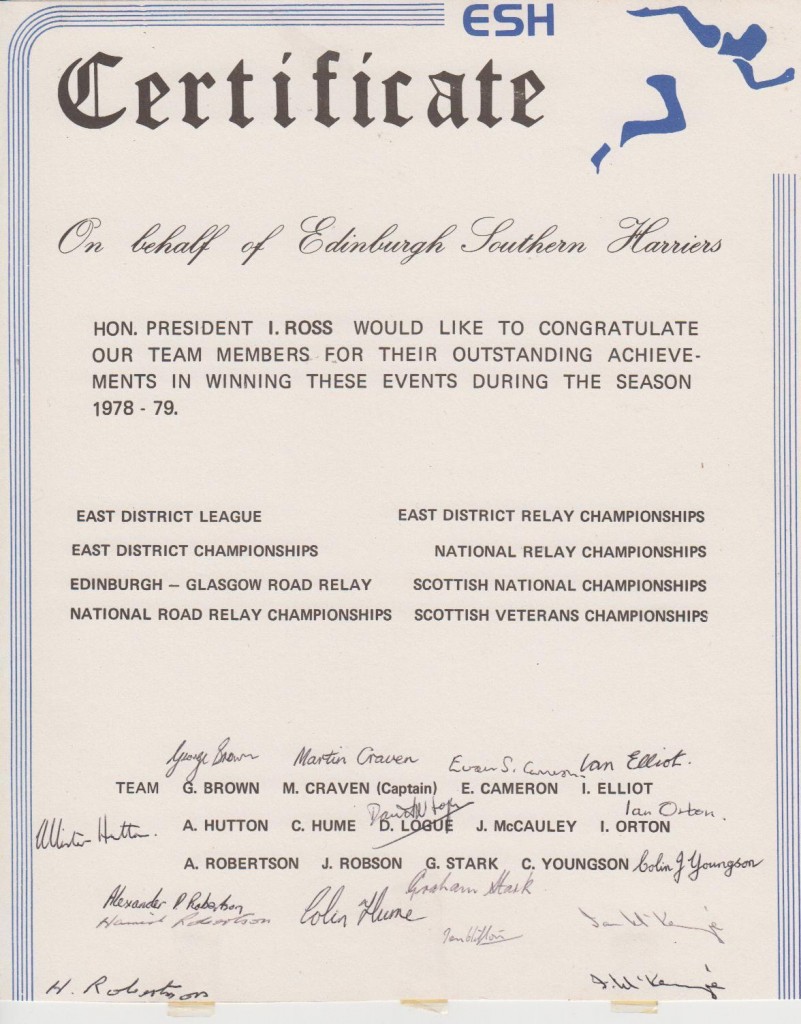 ESH
Certificate
On behalf of Edinburgh Southern Harriers
HON. PRESIDENT I. ROSS WOULD LIKE TO CONGRATULATE
OUR TEAM MEMBERS FOR THEIR OUTSTANDING ACHIEVE-
MENTS IN WINNING THESE EVENTS DURING THE SEASON
1978 - 79.
EAST DISTRICT LEAGUE EAST DISTRICT RELAY CHAMPIONSHIPS
EAST DISTRICT CHAMPIONSHIPS NATIONAL RELAY CHAMPIONSHIPS
EDINBURGH – GLASGOW ROAD RELAY SCOTTISH NATIONAL CHAMPIONSHIPS
NATIONAL ROAD RELAY CHAMPIONSHIPS SCOTTISH VETERANS CHAMPIONSHIPS
George Brown Martin Craven Evan S. Cameron Ian Elliot.
TEAM G. BROWN M. CRAVEN (Captain) E. CAMERON I. ELLIOT
David Logue Ian Orton.
Allister Hutton. A. HUTTON C. HUME D. LOGUE J. McCAULEY I. ORTON
A. ROBERTSON J. ROBSON G. STARK C. YOUNGSON Colin J Youngson
Graham Stark
Alexander P Robertson Colin Hume
Hamish Robertson Ian McKenzie
H. Robertson I. McKenzie